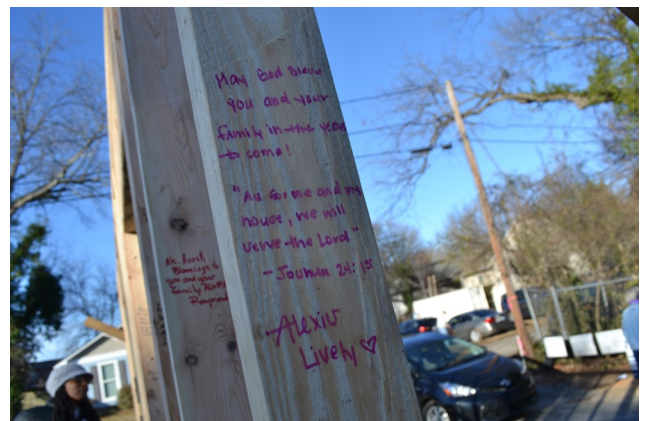 May God Bless
you and your
family in the years
to come!
"As for me and my
house, we will
serve the Lord"
- Joshua 24:15
Alexis
Lively
Ms. April,
Blessings to
you and your
family
Raymond